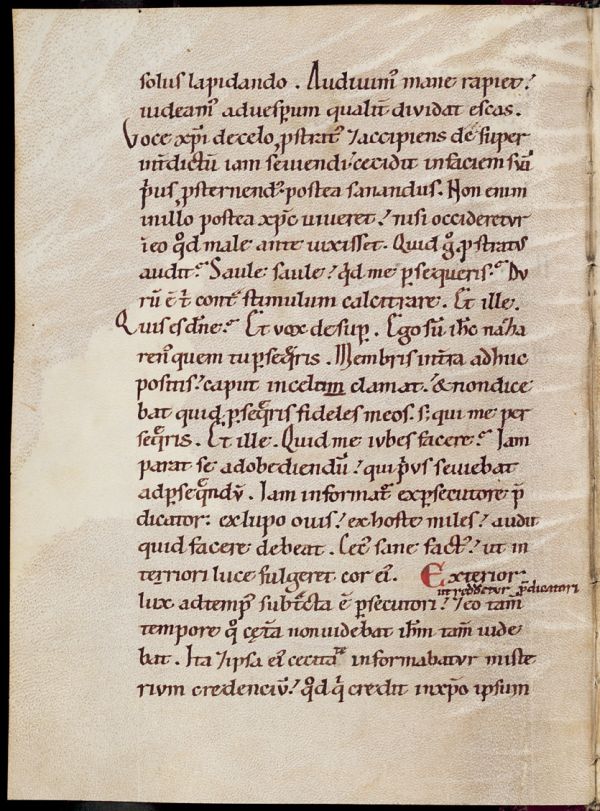 solus lapidando . Audiuim᷒ mane rapiet!
uideam᷒ aduesꝑum qualit̄ diuidat escas.
Voce xp̄i decelo ꝓstrat᷒ ⁊accipiens de super
int̄dictū iam seuiendi! cecidit in faciem suā
p̄us ꝓsternend᷒ postea sanandus. Non enim
inillo postea xp̄c uiueret! nisi occideretur
ineo qd̊ male ante uixisset. Quid g̊ ꝓstratus
audit? Saule saule! qd̄ me ꝑsequeris? Du
rū ē t̄ cont̄ stimulum calcitrare. Et ille.
Quis es dn̄e? Et uox desuꝑ. Ego sū ih̄c naza
ren᷒ quem tu ꝑseq̄ris. Membris int̄ra adhuc
positis! caput incelum clamat! & non dice
bat quid ꝑseq̄ris fideles meos. s; qui me per
seq̄ris. Et ille. Quid me iubes facere? Iam
parat se adobediendū! qui p̄us seuiebat
adꝑseq̄ndū. Iam informat᷑ exꝑsecutore p̄
dicator: exlupo ouis! exhoste miles! audit
quid facere debeat. Cec᷒ sane fact᷒! ut in
terriori luce fulgeret cor ei᷒. Exterior
ut redderetur p̄dicatori
lux adtemp᷒ subt̄cta ē ꝑsecutori! ⁊eo tam̄
tempore q̊ cet̄a non uidebat ih̄m tam̄ uide
bat. Ita ⁊ipsa ei᷒ cecitate informabatur miste
rium credenciū! qd̊ q̄ credit inxp̄o ipsum